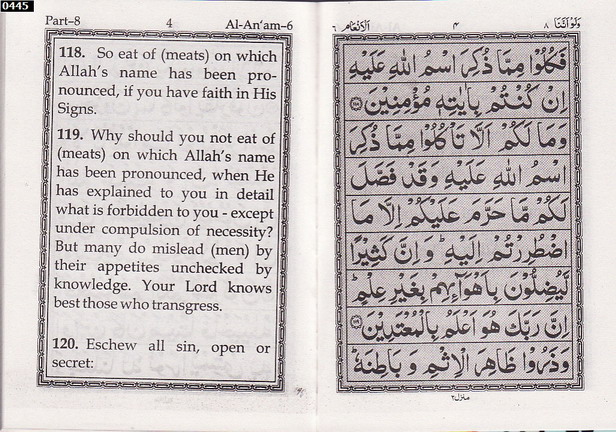 0445
Part-8 4 Al-An'am-6
118. So eat of (meats) on which
Allah's name has been pro-
nounced, if you have faith in His
Signs.
119. Why should you not eat of
(meats) on which Allah's name
has been pronounced, when He
has explained to you in detail
what is forbidden to you - except
under compulsion of necessity?
But many do mislead (men) by
their appetites unchecked by
knowledge. Your Lord knows
best those who transgress.
120. Eschew all sin, open or
secret:
الانعام ٦ ٤ ولواننا ٨
فَكُلُوْا مِمَّا ذُكِرَ اسْمُ اللّٰهِ عَلَيْهِ
اِنْ كُنْتُمْ بِاٰيٰتِهٖ مُؤْمِنِيْنَ ﴿١١٨﴾
وَمَا لَكُمْ اَلَّا تَاْكُلُوْا مِمَّا ذُكِرَ
اسْمُ اللّٰهِ عَلَيْهِ وَقَدْ فَصَّلَ
لَكُمْ مَّا حَرَّمَ عَلَيْكُمْ اِلَّا مَا
اضْطُرِرْتُمْ اِلَيْهِ ؕ وَاِنَّ كَثِيْرًا
لَّيُضِلُّوْنَ بِاَهْوَآئِهِمْ بِغَيْرِ عِلْمٍ ؕ
اِنَّ رَبَّكَ هُوَ اَعْلَمُ بِالْمُعْتَدِيْنَ ﴿١١٩﴾
وَذَرُوْا ظَاهِرَ الْاِثْمِ وَبَاطِنَهٗ ؕ
منزل ٢